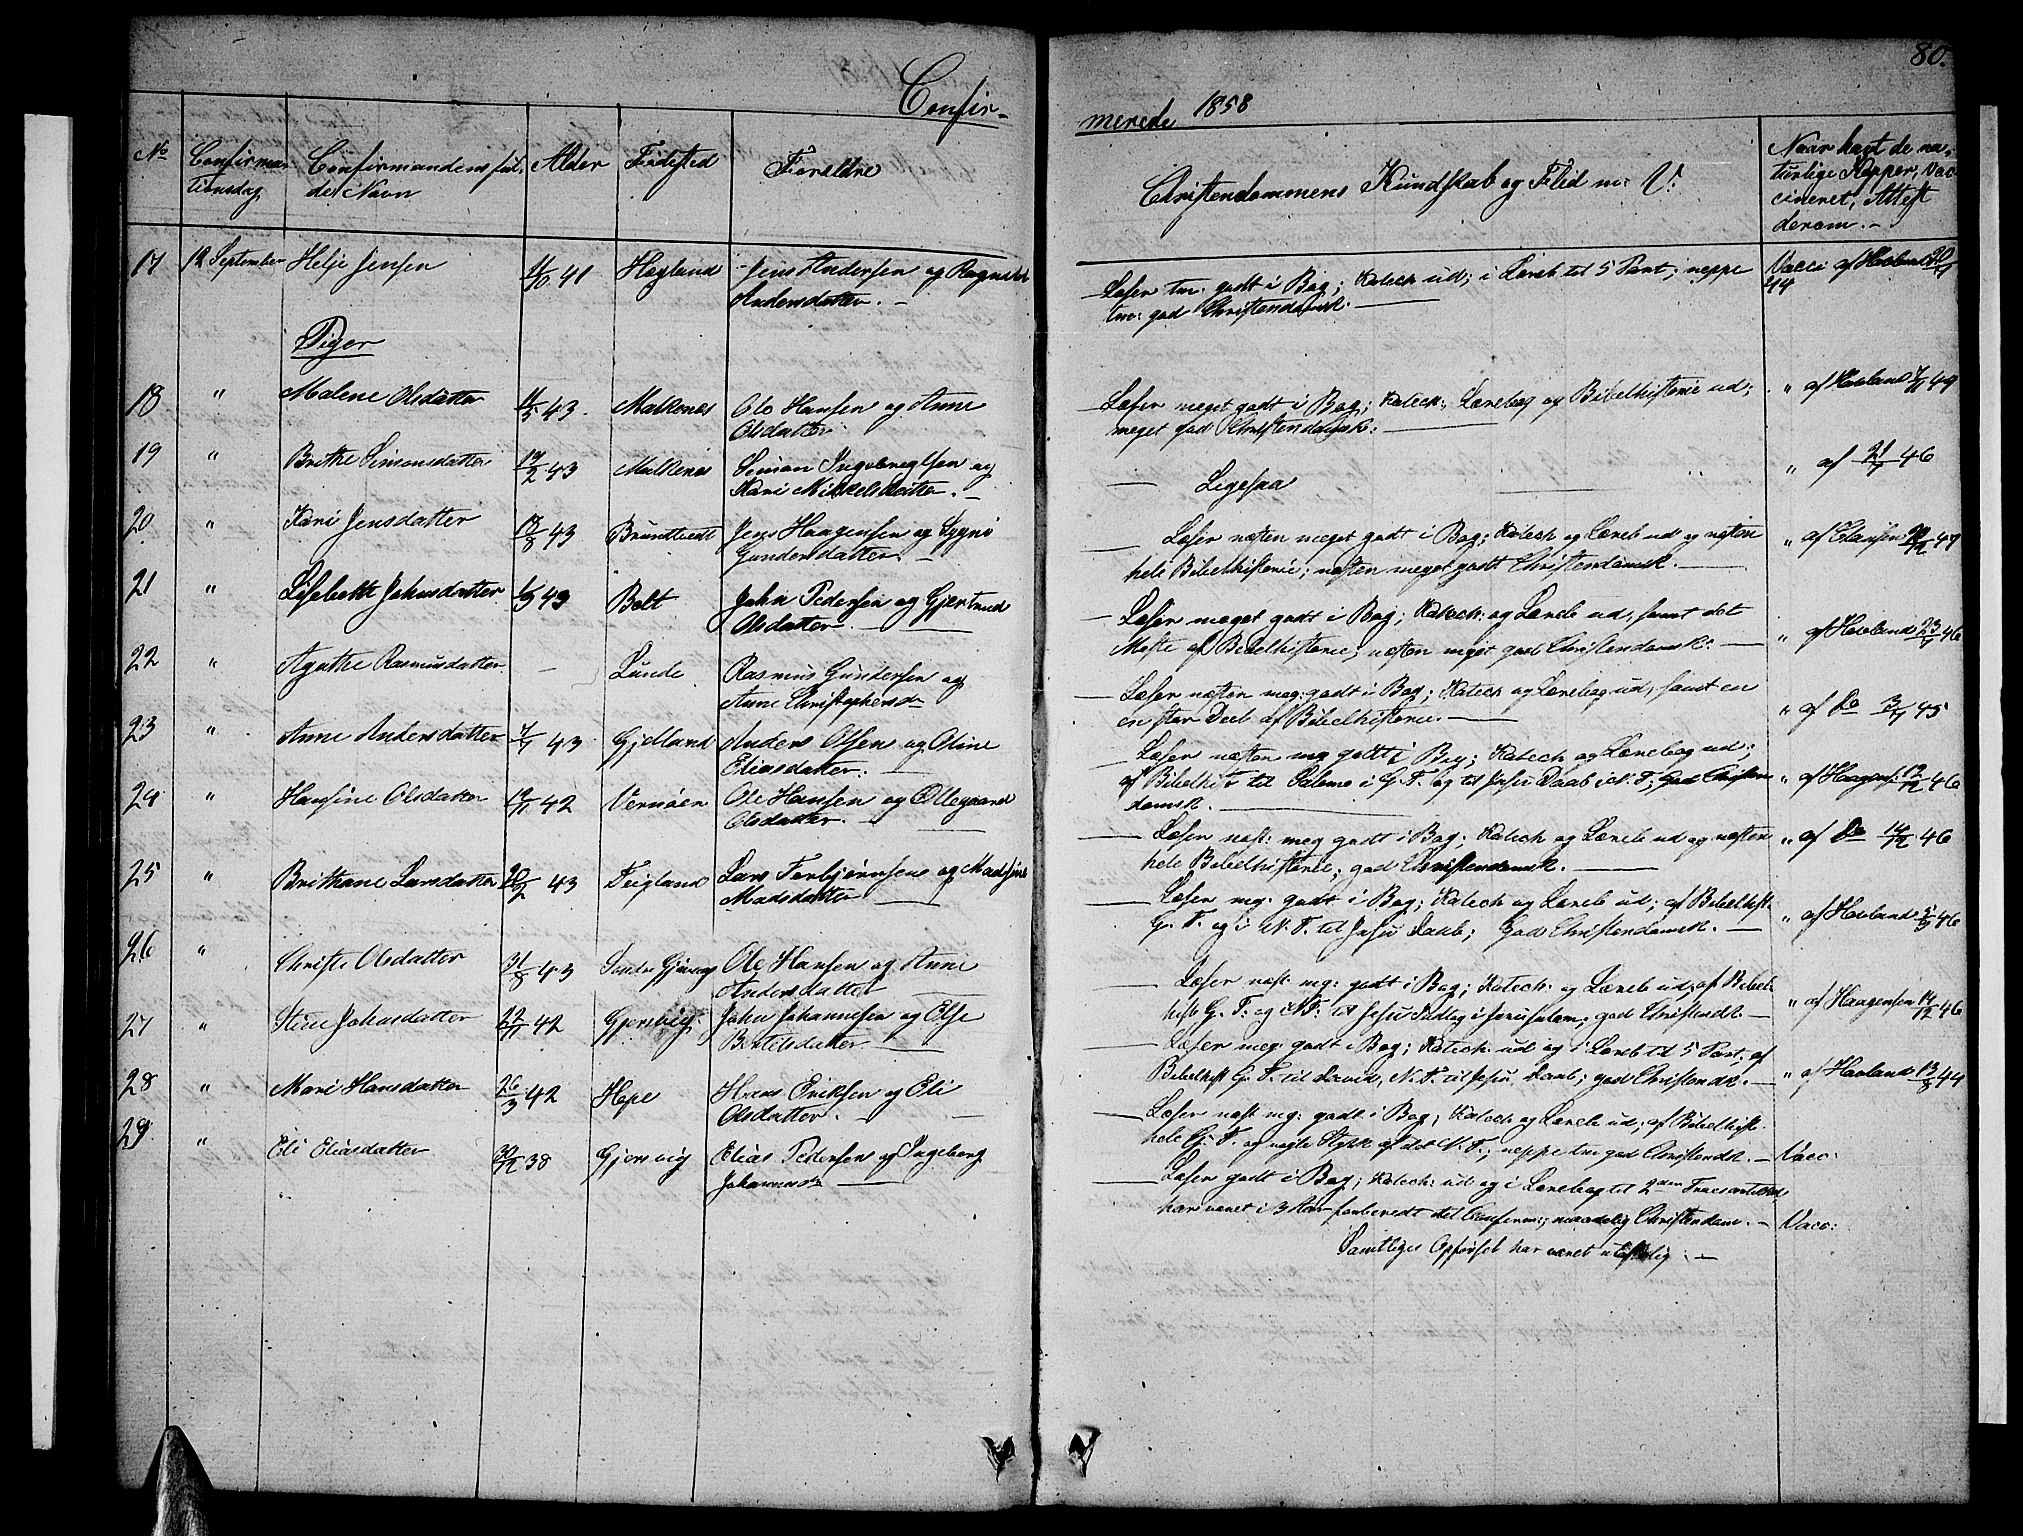 80.
Confir-
merede 1858
No
Confirma-
tionsdag
Confirmandens ful-
de Navn
Alder
Fødested
Forældre
Christendommens Kundskab og Flid m: V:
Naar havt de na-
turlige Kopper, Vac-
cineret, Attest
derom. -
17 12 September Helje Jensen 41 Høgland Jens Andersen og
Andersdatter. -
Læser tm: godt i Bog; Katech ud; i Læreb til 5 Part; neppe
tm: god Christendomsk: -
Vacci af Havland
Piger
18 " Malene Olsdatter 43. Malkenes Ole Hansen og Anne
Olsdatter
Læser meget godt i Bog; Katech:, Lærebog og Bibelhistorie ud;
meget god Christendomsk: -
" af Havland 49
19 " Brithe Simonsdatter 19/2 43 Malkenes Simon Ingebregtsen og
Kari Mikkelsdatter. -
Ligesaa
" af 46
20 " Kari Jensdatter 18/8 43 Brundtvedt Jens Haagensen og
Gundersdatter. -
Læser næsten meget godt i Bog; Katech og Læreb ud og næsten
hele Bibelhistorie; næsten meget godt Christendomsk. -
" af Clausen
21 " Lisebeth Johnsdatter 43 Bolt John Pedersen og Gjertrud
Olsdatter. -
Læser meget godt i Bog; Katech: og Læreb ud, samt det
Meste af Bibelhistorie; næsten meget god Christendomsk: -
" af Havland 23/7 46
22 " Agathe Rasmusdatter - Lunde Rasmus Gundersen og
Anne Christophersd
Læser næsten meg: godt i Bog; Katech og Lærebog ud, samt en
en stor Deel af Bibelhistorie. -
" af Do 3/7 45
23 " Anne Andersdatter 43 Gjelland Anders Olsen og Oline
Eliasdatter: -
Læser næsten meg godt i Bog; Katech og Lærebog ud;
af Bibelhist til Salomo i G. T. og til Jesu Daab i N. T.; God Christen
domsk. -
" af Haagens: 12/12 46
24 " Hansine Olsdatter 42 Vernøen Ole Hansen og Ollegaard
Olsdatter. -
Læser næst: meg godt i Bog; Katech og Læreb ud og næsten
hele Bibelhistorie; god Christendomsk. -
" af Do 14/12 46
25 " Brithane Larsdatter 20/2 43 Teigland Lars Torbjørnsen og Madsine
Madsdatter
Læser meg: godt i Bog; Katech og Læreb ud; af Bibelhist
G. T. og i N. T. til Jesu Daab; God Christendomsk. -
" af Havland 46
26 " Christi Olsdatter 31/8 43 Søndre Ole Hansen og Anne
Andersdatter
Læser næst: meg: godt i Bog; Katech: og Læreb ud; af Bibel-
hist G. T. og i N. T. til Jesu Indtog i Jerusalem; god Christendk -
" af Haagensen 14/12 46
27 " Stine Johnsdatter 22/11 42 Gjersvig John Johannesen og Else
Bertelsdatter
Læser meg: godt i Bog; Katech: ud og i Læreb til 5 Part, af
Bibelhist G. T. til David, N. T. til Jesu Daab; god Christendk. -
" af Havland 13/8 44
28 " Mari Hansdatter 26/3 42 Hope Hans Eriksen og Eli
Olsdatter. -
Læser næst meg: godt i Bog; Katech og Læreb ud; af Bibelhist.
hele G. T. og nogle Stykk af det N. T.; neppe tm god Christendk. - Vacc:
29 " Eli Eliasdatter 30/12 38 Gjersvig Elias Pedersen og Ingeborg
Johannesd
Læser godt i Bog; Katech: ud og i Lærebog til 2den Troesartikel
har været i 3 Aar forberedt til Conferm:; maadelig Christendom. - Vacc:
Samtliges Opførsel har været ulastelig. -